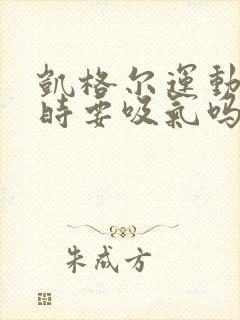 凱格尔運動
時要吸氣吗
朱成方